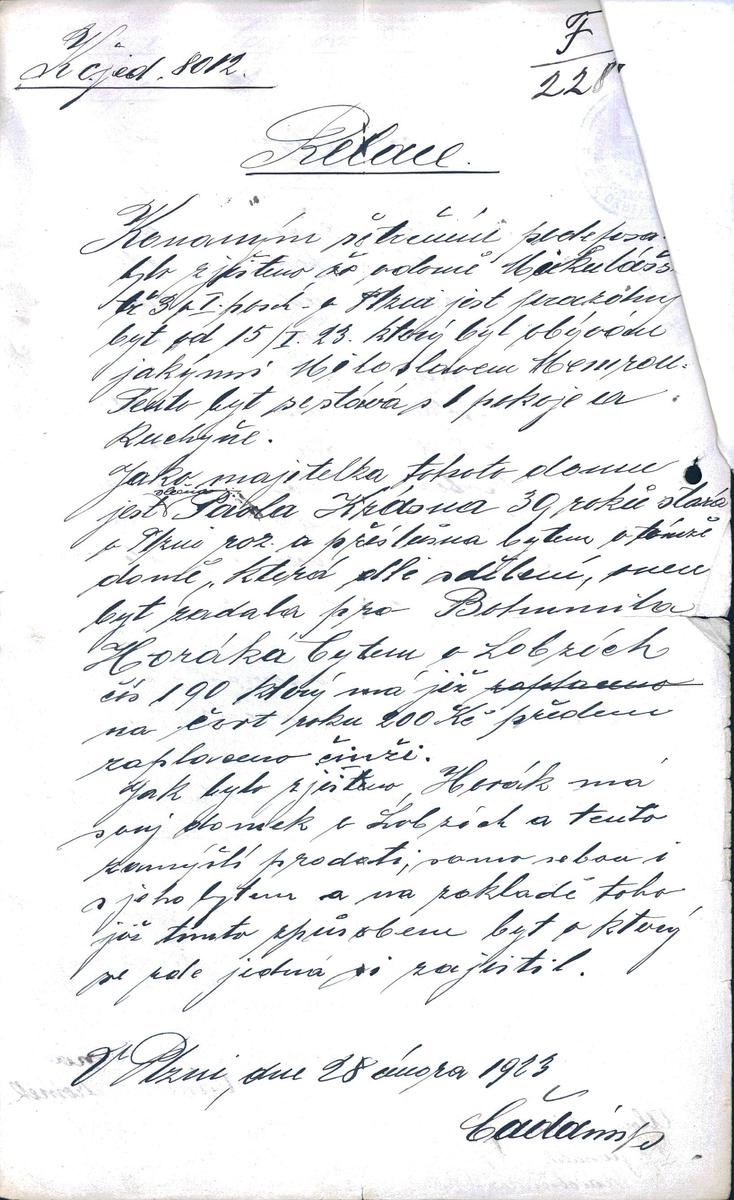 K č. jed. 8012.
F
228
Relace.
Konaným šetřením podepsa-
bylo zjištěno že v domě Mikulášs
tř 3 v I. posch. v Plzni jest prázdný
byt od 15/I. 23. který byl obýván
jakýmsi Miloslavem
Tento byt sestává s 1 pokoje a
kuchyňe.
Jako majitelka tohoto domu
jest slečna Pavla Krásna 39 roků stará
v Plzni roz. a příslušna bytem v tomže
domě, která dle sdělení, onen
byt zadala pro Bohumila
Horáka bytem v Lobzích
čís 190 který má již zaplaceno
na čtvrt roku 200 Kč předem
zaplaceno činži.
Jak bylo zjištěno, Horák má
svuj domek v Lobzích a tento
zamýšlí prodati, samo sebou i
s jeho bytem a na zakladě toho
již tímto způsobem byt o který
se zde jedná si zajistil.
V Plzni, dne 28 února 1923